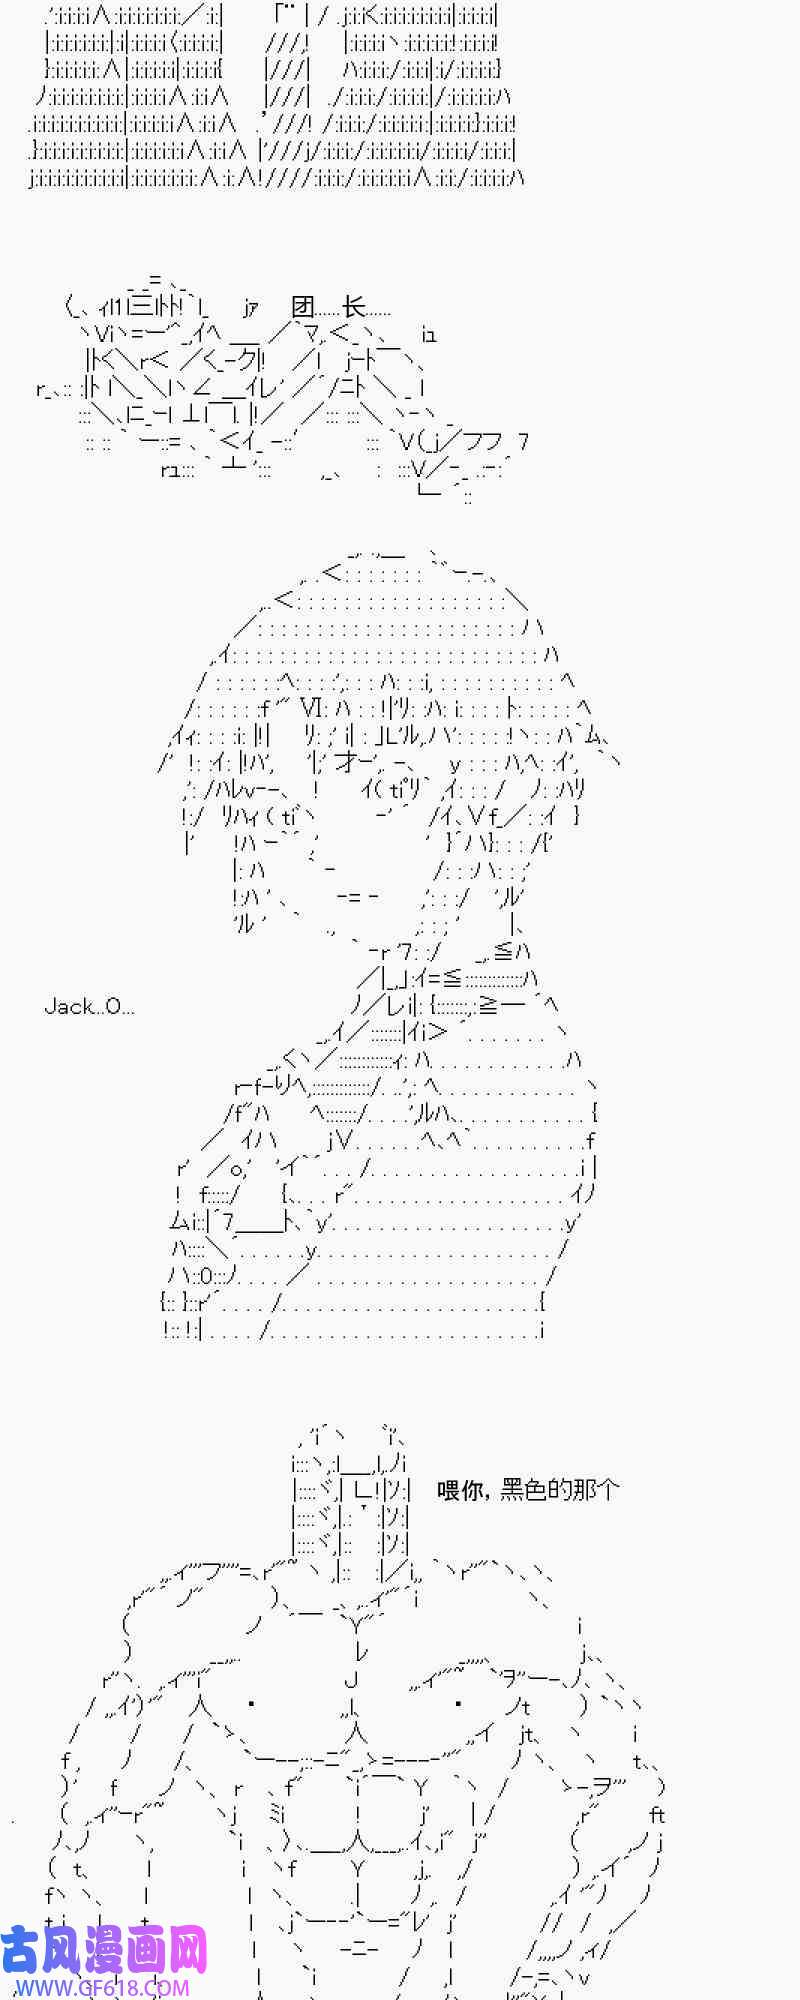 团……长……
Jack...O...
喂你，黑色的那个
古风漫画网
WWW.GF618.COM